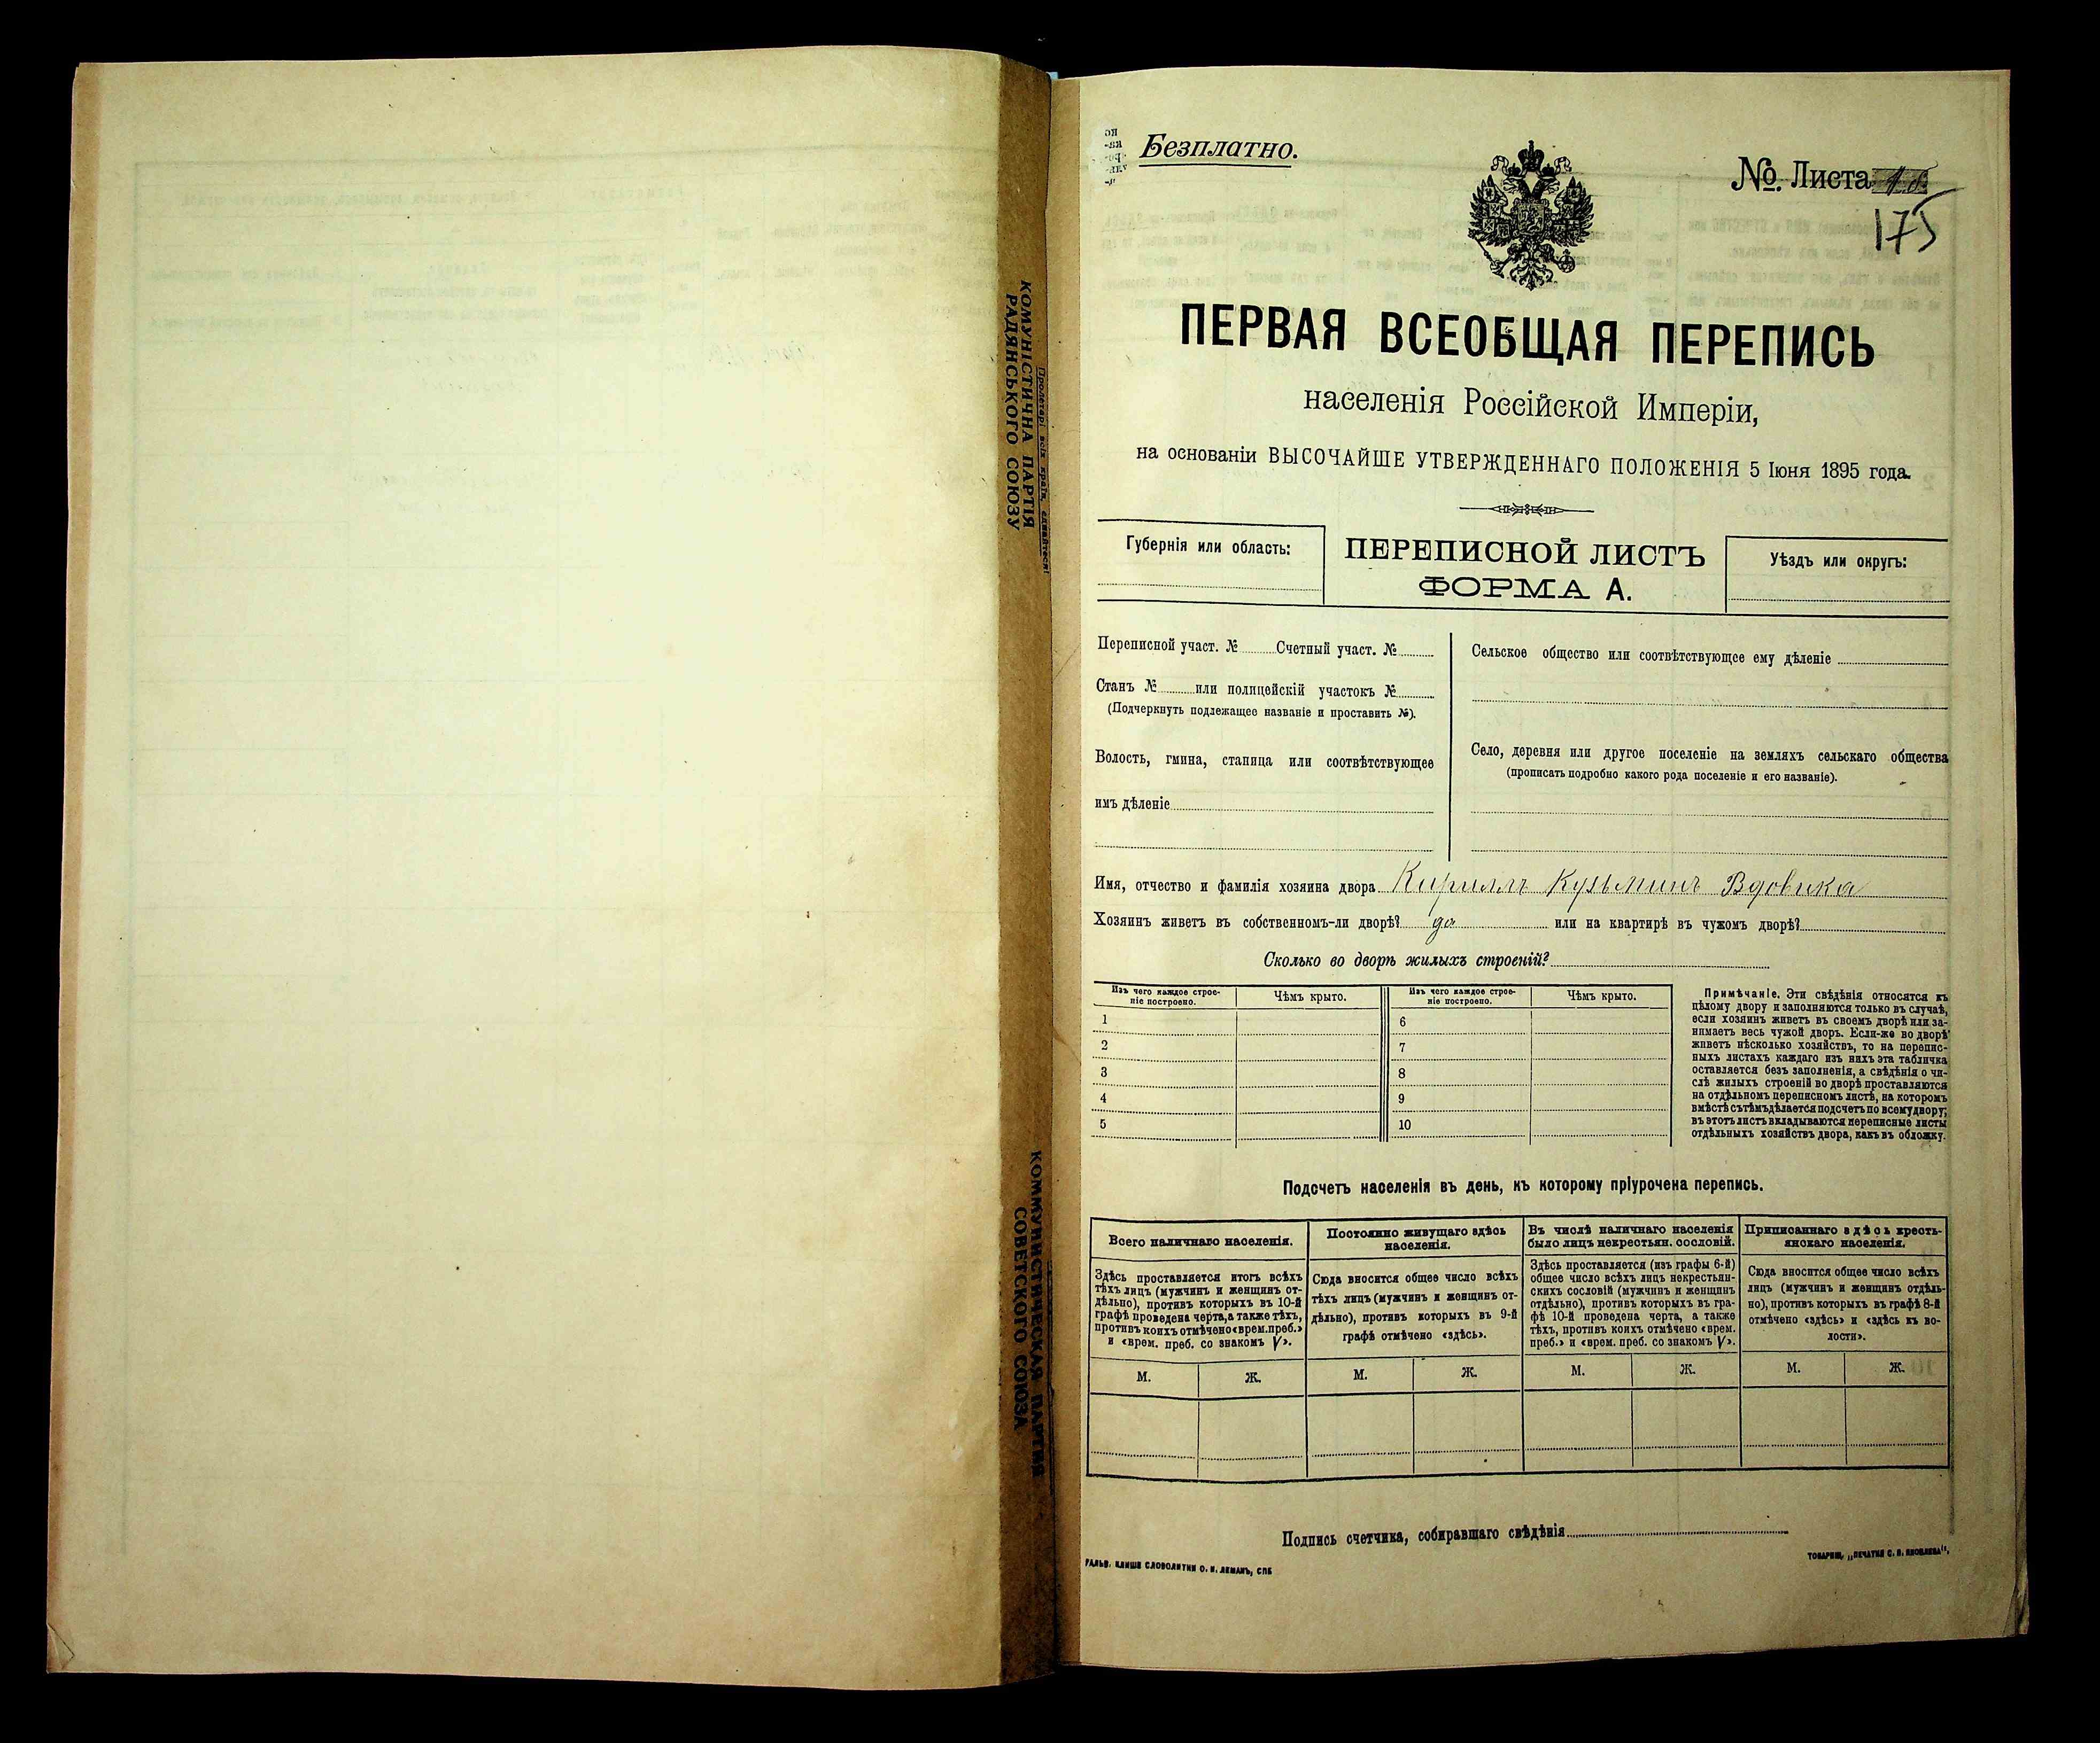 Пролетарі всіх країн, єднайтеся!
КОМУНІСТИЧНА ПАРТІЯ
РАДЯНСЬКОГО СОЮЗУ
КОММУНИСТИЧЕСКАЯ ПАРТИЯ
СОВЕТСКОГО СОЮЗА
Безплатно.
№ Листа
175
ПЕРВАЯ ВСЕОБЩАЯ ПЕРЕПИСЬ
населенія Россійской Имперіи,
на основаніи ВЫСОЧАЙШЕ УТВЕРЖДЕННАГО ПОЛОЖЕНІЯ 5 Іюня 1895 года.
Губернія или область:
ПЕРЕПИСНОЙ ЛИСТЪ
ФОРМА А.
Уѣздъ или округъ:
Переписной участ. № Счетный участ. №
Станъ № или полицейскій участокъ №
(Подчеркнуть подлежащее названіе и проставить №).
Волость, гмина, станица или соотвѣтствующее
имъ дѣленіе
Сельское общество или соотвѣтствующее ему дѣленіе
Село, деревня или другое поселеніе на земляхъ сельскаго общества
(прописать подробно какого рода поселеніе и его названіе).
Имя, отчество и фамилія хозяина двора Кириллъ Кузьминъ Вдовика
Хозяинъ живетъ въ собственномъ-ли дворѣ? да или на квартирѣ въ чужомъ дворѣ?
Сколько во дворѣ жилыхъ строеній?
Изъ чего каждое строе-
ніе построено.
Чѣмъ крыто.
Изъ чего каждое строе-
ніе построено.
Чѣмъ крыто.
1
2
3
4
5
6
7
8
9
10
Примѣчаніе. Эти свѣдѣнія относятся къ
цѣлому двору и заполняются только въ случаѣ,
если хозяинъ живетъ въ своемъ дворѣ или за-
нимаетъ весь чужой дворъ. Если-же во дворѣ
живетъ нѣсколько хозяйствъ, то на перепис-
ныхъ листахъ каждаго изъ нихъ эта табличка
оставляется безъ заполненія, а свѣдѣнія о чи-
слѣ жилыхъ строеній во дворѣ проставляются
на отдѣльномъ переписномъ листѣ, на которомъ
вмѣстѣ съ тѣмъ дѣлается подсчетъ по всему двору;
въ этотъ листъ вкладываются переписные листы
отдѣльныхъ хозяйствъ двора, какъ въ обложку.
Подсчетъ населенія въ день, къ которому пріурочена перепись.
Всего наличнаго населенія.
Здѣсь проставляется итогъ всѣхъ
тѣхъ лицъ (мужчинъ и женщинъ от-
дѣльно), противъ которыхъ въ 10-й
графѣ проведена черта, а также тѣхъ,
противъ коихъ отмѣчено «врем. преб.»
и «врем. преб. со знакомъ V».
М. Ж.
Постоянно живущаго здѣсь
населенія.
Сюда вносится общее число всѣхъ
тѣхъ лицъ (мужчинъ и женщинъ от-
дѣльно), противъ которыхъ въ 9-й
графѣ отмѣчено «здѣсь».
М. Ж.
Въ числѣ наличнаго населенія
было лицъ некрестьян. сословій.
Здѣсь проставляется (изъ графы 6-й)
общее число всѣхъ лицъ некрестьян-
скихъ сословій (мужчинъ и женщинъ
отдѣльно), противъ которыхъ въ гра-
фѣ 10-й проведена черта, а также
тѣхъ, противъ коихъ отмѣчено «врем.
преб.» и «врем. преб. со знакомъ V».
М. Ж.
Приписаннаго здѣсь кресть-
янскаго населенія.
Сюда вносится общее число всѣхъ
лицъ (мужчинъ и женщинъ отдѣль-
но), противъ которыхъ въ графѣ 8-й
отмѣчено «здѣсь» и «здѣсь къ во-
лости».
М. Ж.
Подпись счетчика, собиравшаго свѣдѣнія
ГАЛЬВ. КЛИШЕ СЛОВОЛИТНИ О. И. ЛЕМАНЪ, СПБ
ТОВАРИЩ. „ПЕЧАТНЯ С. П. ЯКОВЛЕВА“,